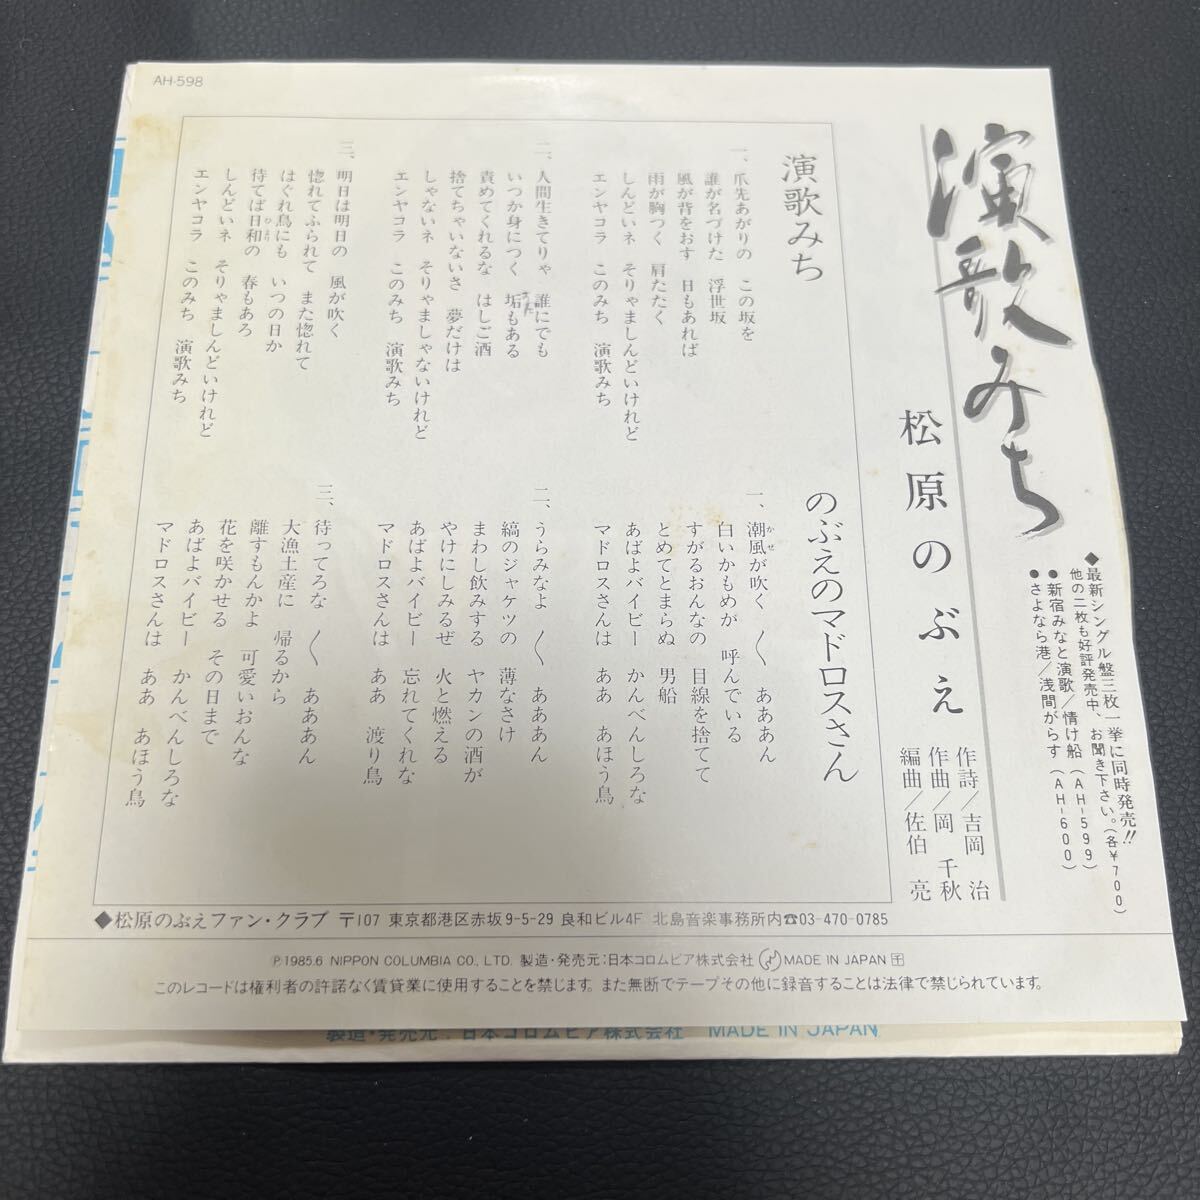 AH-598
演歌みち
松原のぶえ
作詩/吉岡 治
作曲/岡 千秋
編曲/佐伯 亮
◆最新シングル盤三枚一挙に同時発売!!
他の二枚も好評発売中、お聞き下さい。(各¥700)
●新宿みなと演歌/情け船(AH-599)
●さよなら港/浅間がらす(AH-600)
演歌みち
一、爪先あがりの この坂を
誰が名づけた 浮世坂
風が背をおす 日もあれば
雨が胸つく 肩たたく
しんどいネ そりゃましんどいけれど
エンヤコラ このみち 演歌みち
二、人間生きてりゃ 誰にでも
いつか身につく 垢もある
責めてくれるな はしご酒
捨てちゃいないさ 夢だけは
しゃないネ そりゃましゃないけれど
エンヤコラ このみち 演歌みち
三、明日は明日の 風が吹く
惚れてふられて また惚れて
はぐれ鳥にも いつの日か
待てば日和の 春もあろ
しんどいネ そりゃましんどいけれど
エンヤコラ このみち 演歌みち
のぶえのマドロスさん
一、潮風が吹く 〱 あああん
白いかもめが 呼んでいる
すがるおんなの 目線を捨てて
とめてとまらぬ 男船
あばよバイビー かんべんしろな
マドロスさんは ああ あほう鳥
二、うらみなよ 〱 あああん
縞のジャケツの 薄なさけ
まわし飲みする ヤカンの酒が
やけにしみるぜ 火と燃える
あばよバイビー 忘れてくれな
マドロスさんは ああ 渡り鳥
三、待ってろな 〱 あああん
大漁土産に 帰るから
離すもんかよ 可愛いおんな
花を咲かせる その日まで
あばよバイビー かんべんしろな
マドロスさんは ああ あほう鳥
◆松原のぶえファン・クラブ 〒107 東京都港区赤坂9-5-29 良和ビル4F 北島音楽事務所内☎03-470-0785
Ⓟ1985.6 NIPPON COLUMBIA CO., LTD. 製造・発売元:日本コロムビア株式会社 MADE IN JAPAN
このレコードは権利者の許諾なく賃貸業に使用することを禁じます。また無断でテープその他に録音することは法律で禁じられています。
製造・発売元:日本コロムビア株式会社 MADE IN JAPAN